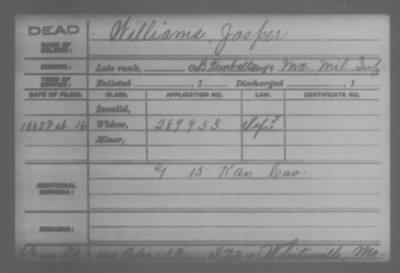 DEAD
Williams, Jasper
NAME OF SOLDIER:
SERVICE:
Late rank, Co. B, Mo. Mil. Inf.
TERM OF SERVICE:
Enlisted , 1 Discharged , 1
DATE OF FILING. CLASS. APPLICATION NO. LAW. CERTIFICATE NO.
Invalid,
Feb. 16 Widow, 289953
Minor,
15 Kan. Cav.
ADDITIONAL SERVICES:
REMARKS:
Apr. 1872 Mo.